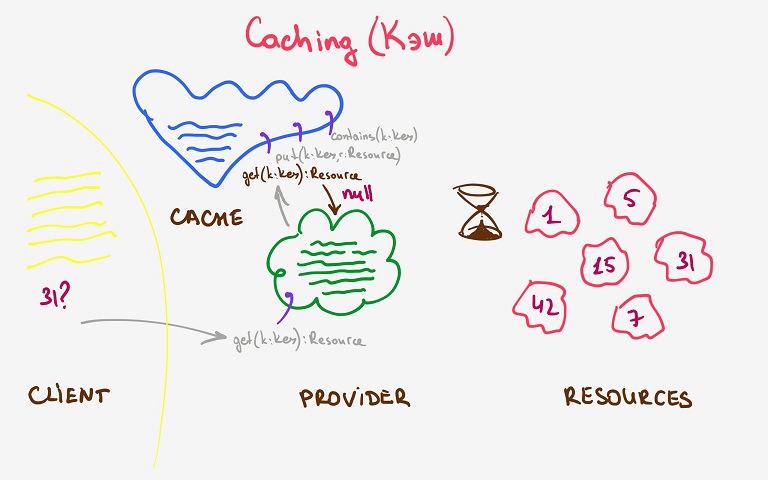 Caching (Кэш)
contains(k:Key)
put(k:Key,r:Resource)
get(k:Key):Resource
null
CACHE
1
5
15
31
42
7
31?
get(k:Key):Resource
CLIENT
PROVIDER
RESOURCES